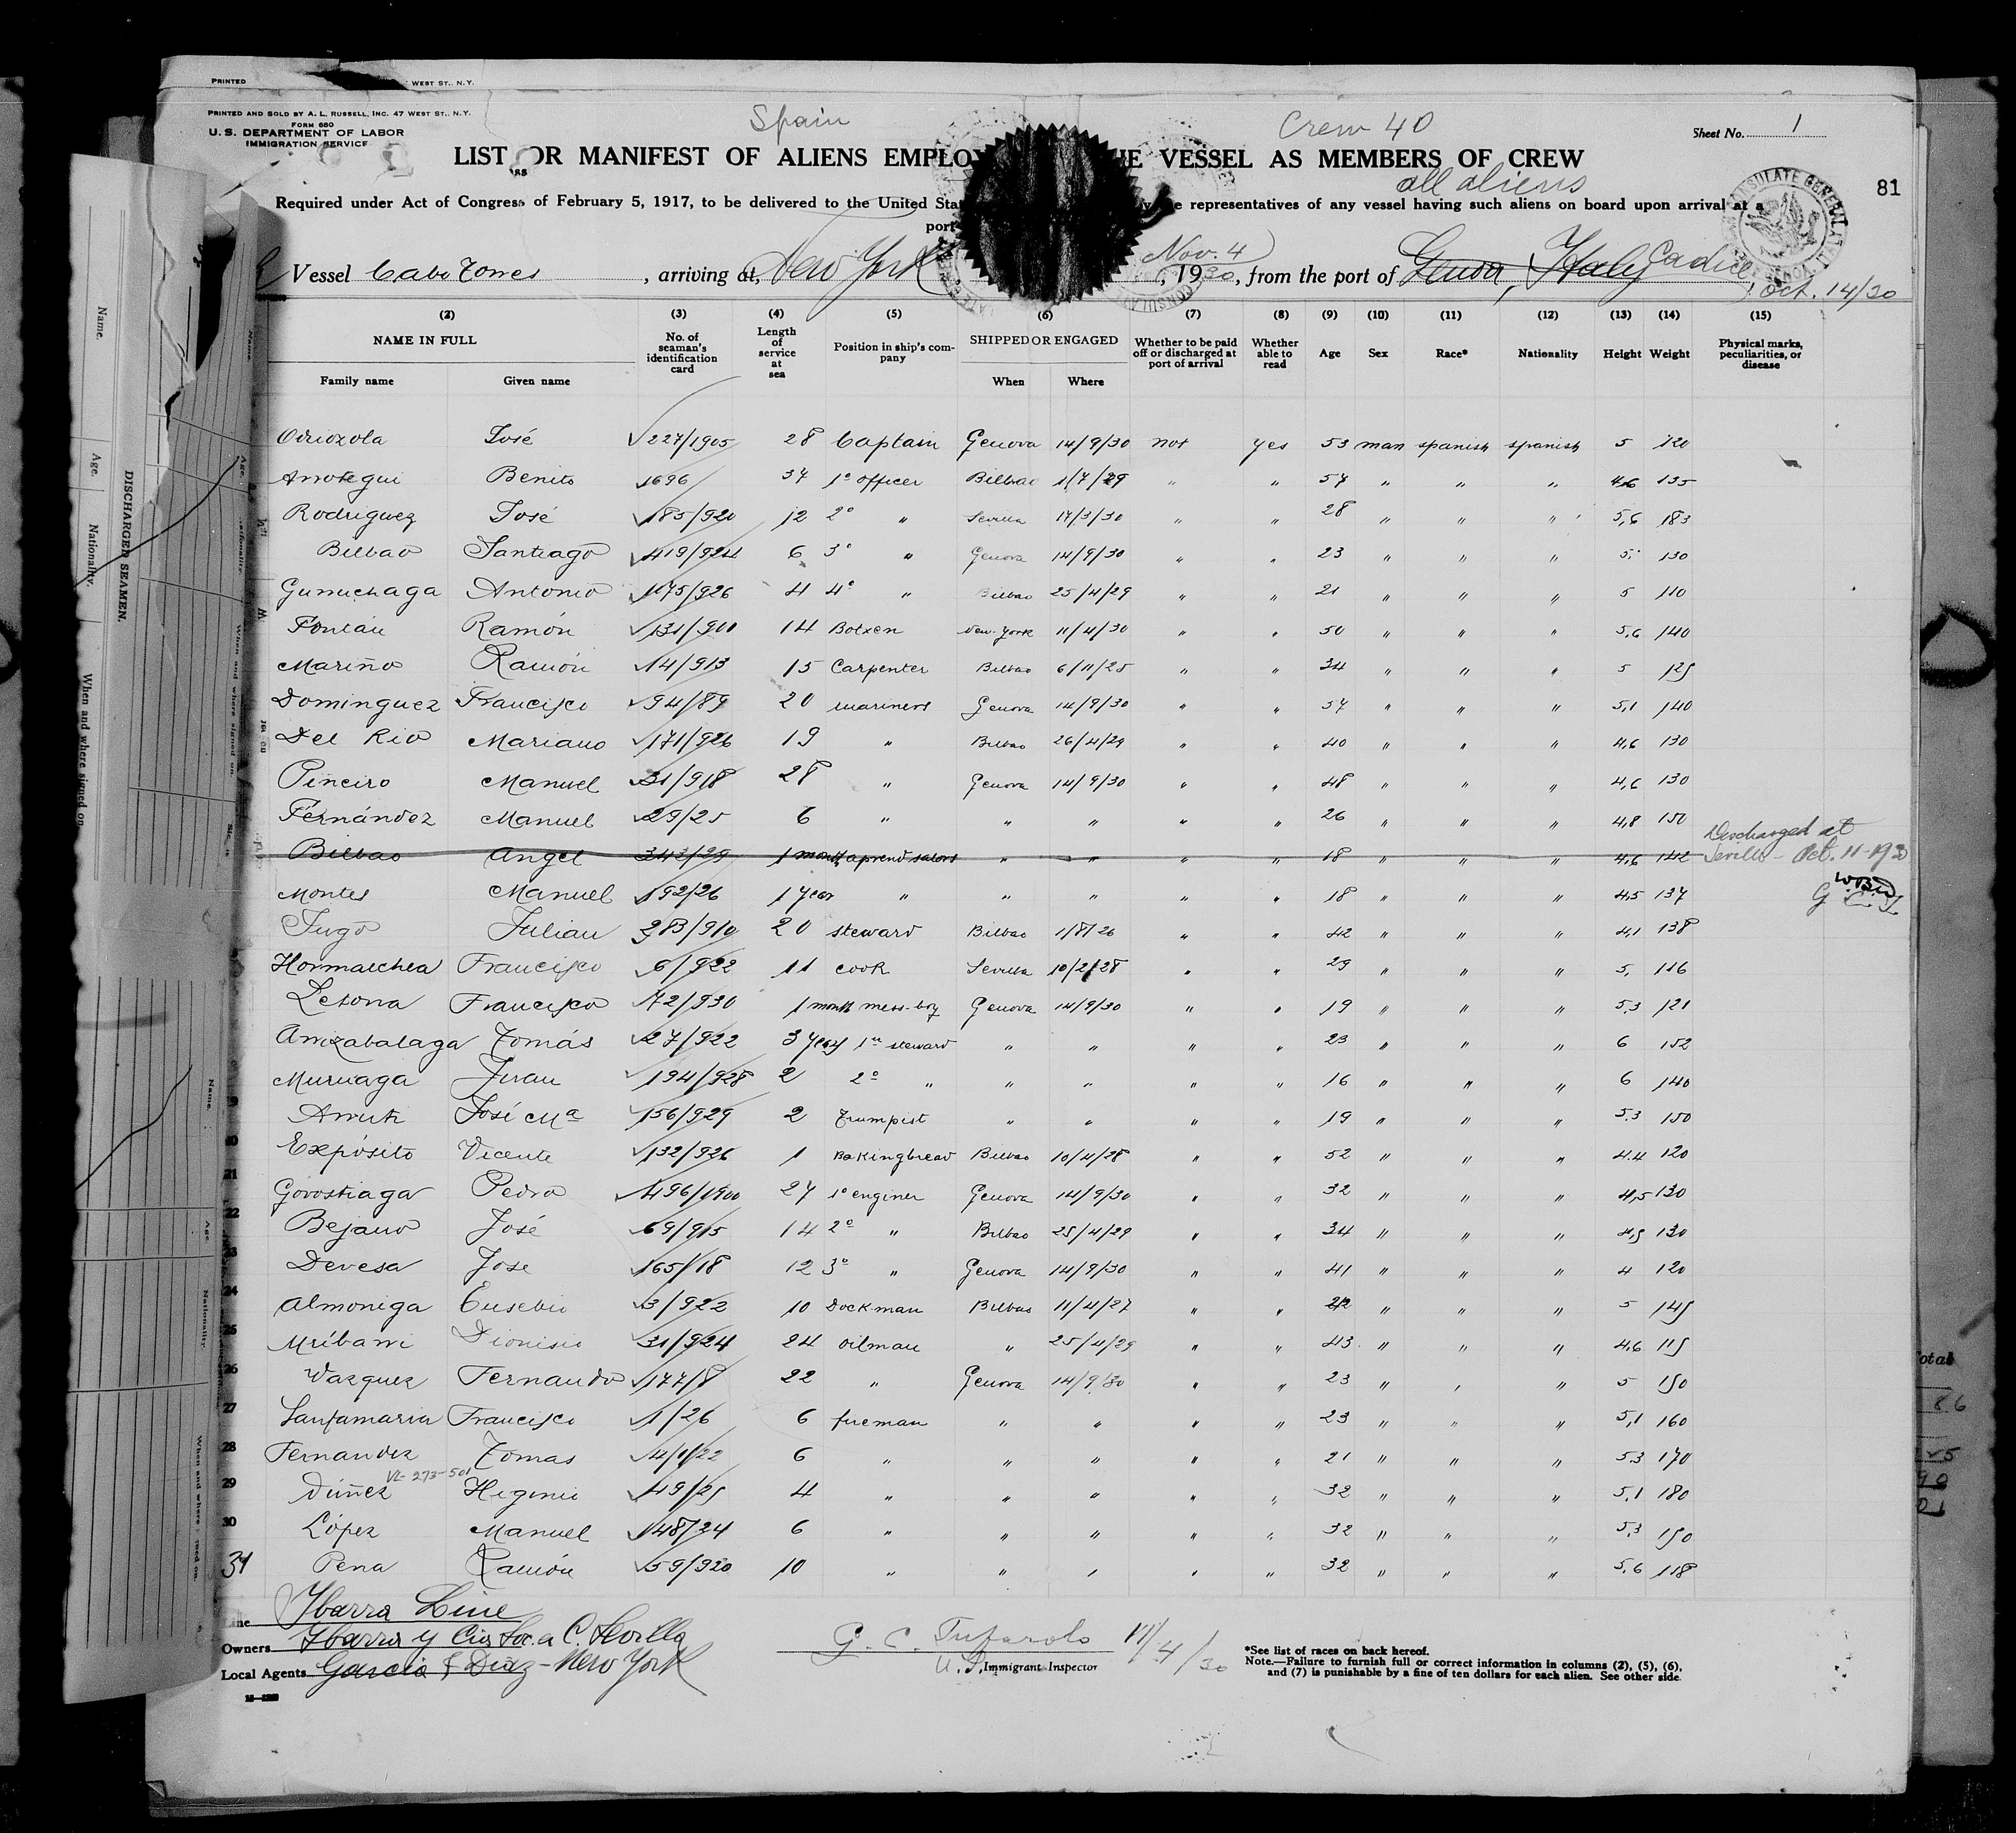 PRINTED WEST ST., N.Y.
PRINTED AND SOLD BY A. L. RUSSELL, INC. 47 WEST ST., N.Y.
FORM 680
U. S. DEPARTMENT OF LABOR
IMMIGRATION SERVICE
Spain
Crew 40
Sheet No. 1
LIST OR MANIFEST OF ALIENS EMPLO E VESSEL AS MEMBERS OF CREW
all aliens
81
Required under Act of Congress of February 5, 1917, to be delivered to the United Sta representatives of any vessel having such aliens on board upon arrival at a
port
Vessel Cabo Torres, arriving at New York Nov. 4, 1930, from the port of Genoa, Italy Cadice
Oct. 14/30
(2) (3) (4) (5) (6) (7) (8) (9) (10) (11) (12) (13) (14) (15)
NAME IN FULL No. of seaman's identification card Length of service at sea Position in ship's company SHIPPED OR ENGAGED Whether to be paid off or discharged at port of arrival Whether able to read Age Sex Race* Nationality Height Weight Physical marks, peculiarities, or disease
Family name Given name When Where
Oriozola José 227/1905 28 Captain Genova 14/9/30 not yes 53 man spanish spanish 5 120
Arrotegui Benito 1696 34 1º officer Bilbao 1/7/29 " " 57 " " " 4,6 135
Rodriguez José 185/920 12 2º " Sevilla 17/3/30 " " 28 " " " 5,6 183
Bilbao Santiago 419/924 6 3º " Genova 14/9/30 " " 23 " " " 5 130
Gumuchaga Antonio 175/926 4 4º " Bilbao 25/4/29 " " 21 " " " 5 110
Fontán Ramón 131/900 14 Botxen New-York 11/4/30 " " 50 " " " 5,6 140
Mariño Ramón 14/913 15 Carpenter Bilbao 6/11/25 " " 34 " " " 5 125
Dominguez Francisco 94/89 20 mariners Genova 14/9/30 " " 57 " " " 5,1 140
Del Rio Mariano 171/926 19 " Bilbao 26/4/29 " " 40 " " " 4,6 130
Piñeiro Manuel 31/918 28 " Genova 14/9/30 " " 48 " " " 4,6 130
Fernández Manuel 29/25 6 " " " " " 26 " " " 4,8 150
Bilbao Angel 343/29 1 month aprend sailors " " " " 18 " " " 4,6 142 Discharged at
Sevilla - Oct. 11-1930
Montes Manuel 192/26 1 year " " " " " 18 " " " 4,5 137
Iugo Julian 283/910 20 steward Bilbao 1/8/26 " " 42 " " " 4,1 138
Hormaechea Francisco 6/922 11 cook Sevilla 10/2/28 " " 29 " " " 5, 116
Letona Francisco 72/930 1 month mess-boy Genova 14/9/30 " " 19 " " " 5,3 121
Arrizabalaga Tomás 27/922 3 years 1er steward " " " " 23 " " " 6 152
Muruaga Juan 194/928 2 2º " " " " " 16 " " " 6 140
Arruti José Mª 156/929 2 Trumpist " " " " 19 " " " 5,3 150
20 Expósito Vicente 132/926 1 Bakingbread Bilbao 10/4/28 " " 52 " " " 4.4 120
21 Gorostiaga Pedro 496/1900 27 1º enginer Genova 14/9/30 " " 32 " " " 4,5 130
22 Bejano José 69/915 14 2º " Bilbao 25/4/29 " " 34 " " " 4,5 130
23 Devesa Jose 165/18 12 3º " Genova 14/9/30 " " 41 " " " 4 120
24 Almoniga Eusebio 3/922 10 Dockman Bilbao 11/4/27 " " 22 " " " 5 145
25 Mribarri Dionisio 31/924 24 oilman " 25/4/29 " " 43 " " " 4,6 115
26 Vazquez Fernando 177/8 22 " Genova 14/9/30 " " 23 " " " 5 150
27 Santamaria Francisco 1/26 6 fireman " " " " 23 " " " 5,1 160
28 Fernandez Tomas 4/1/22 6 " " " " " 21 " " " 5,3 170
VL-273-501
29 Núñez Higinio 49/25 4 " " " " " 32 " " " 5,1 180
30 López Manuel 148/24 6 " " " " " 32 " " " 5,3 150
31 Pena Ramón 59/920 10 " " " " " 32 " " " 5,6 118
Line Ybarra Line
Owners Ybarra y Cia Soc. a C. Sevilla
Local Agents Garcia & Diaz - New York
G. C. Tufarolo 11/4/30
U.S. Immigrant Inspector
*See list of races on back hereof.
Note.—Failure to furnish full or correct information in columns (2), (5), (6),
and (7) is punishable by a fine of ten dollars for each alien. See other side.
DISCHARGED SEAMEN.
Name. Age. Nationality. When and where signed on.